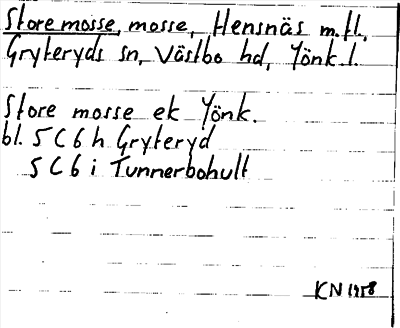 Store mosse, mosse, Hensnäs m.fl.
Gryteryds sn, Västbo hd, Jönk. l.
Store mosse ek Jönk.
bl. 5C6h Gryteryd
5C6i Tunnerbohult
KN 1958